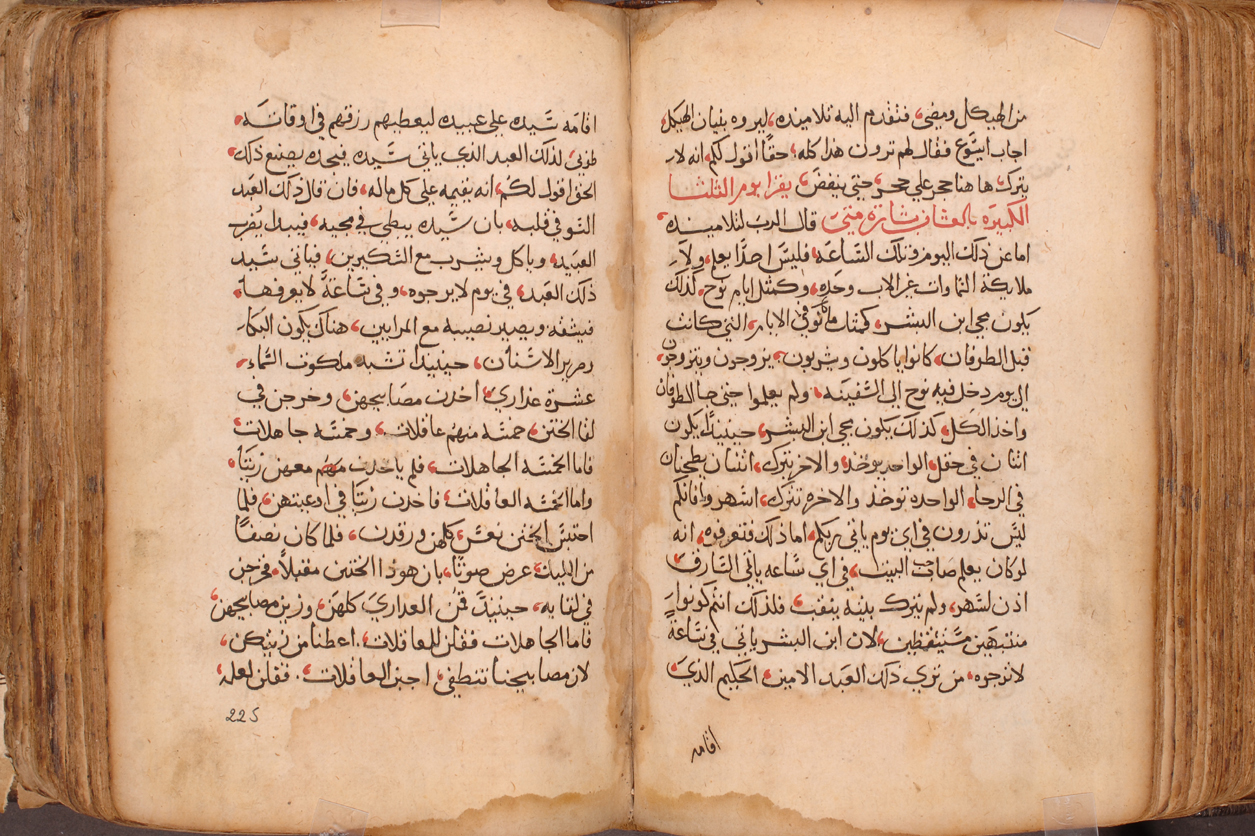 من الهيكل ومضى، فتقدم اليه تلاميذه، ليروه بنيان الهيكل
اجاب ايسوع فقال لهم ترون هذا كله، حقًا اقول لكم، انه لا
يترك، ها هنا حجر علي حجر، حتي ينقض، يقرا يوم الثلثا
الكبيره بالعشا بشارة متى قال الرب لتلاميذه،
اما عن ذلك اليوم وتلك الساعة، فليس احدًا يعلم، ولا
ملايكة السماوات غير الاب وحده، وكمثل ايام نوح، كذلك
يكون مجي ابن البشر، كمثل ما كانوا في الايام، التي كانت
قبل الطوفان، كانوا ياكلون ويشربون، يزوجون ويتزوجون
الى يوم دخل فيه نوح الي السفينه، ولم يعلموا حتى جا الطوفان
واخذ الكل، كذلك يكون مجي ابن البشر، حينيذًا، يكون
اثنان في حقل، الواحد يوخذ، والاخر يترك، اثنتان يطحنان
في الرحا، الواحده توخذ والاخره تترك، اسهروا فانكم
ليس تدرون في اي يوم ياتي ربكم، اما ذلك فتعرفوه، انه
لو كان يعلم صاحب البيت، في اي ساعه ياتي السارق،
اذن لسهر، ولم يترك بيته ينقب، فلذلك انتم كونوا،
منتبهين مستيقظين، لان ابن البشر ياتي في ساعة
لا ترجوه، من تري ذلك العبد الامين، الحكيم الذي،
اقامه
اقامة سيده علي عبيده ليعطيهم رزقهم في اوقاته،
طوبي، لذلك العبد الذي ياتي سيده فيجده يصنع ذلك،
الحق اقول لكم، انه يقيمه علي كل ماله، فان قال ذلك العبد
السو في قلبه، بان سيده يبطي في مجيه، فيبدا يضرب
العبيد، وياكل ويشرب مع السكيرين، فياتي سيد
ذلك العبد، في يوم لا يرجوه، و في ساعة لا يعرفها،
فيشقه ويصير نصيبه مع المرايين، هناك يكون البكا،
وصرير الاسنان، حينيذ تشبه ملكوت السماء،
عشرة عذاري، اخذن مصابيحهن، وخرجن في
لقا الختن، خمسه منهم عاقلات، وخمسه جاهلات،
فاما الخمسه الجاهلات، فلم ياخذن منهم معهن زيتًا،
واما الخمسه العاقلات، فاخذن زيتًا في اوعيتهن، فلما
احتبس الختن نعس، كلهن ورقدن، فلما كان نصفًا
من الليل، عرض صوتًا، بان هوذا الختن مقبلًا، فخرجن
في لقايه، حينيذ قمن العداري كلهن، وزين مصابيحهن،
فاما الجاهلات فقلن للعاقلات، اعطنا من زيتكن،
لان مصابيحنا تنطفي، اجبن العاقلات. فقلن لعله
225